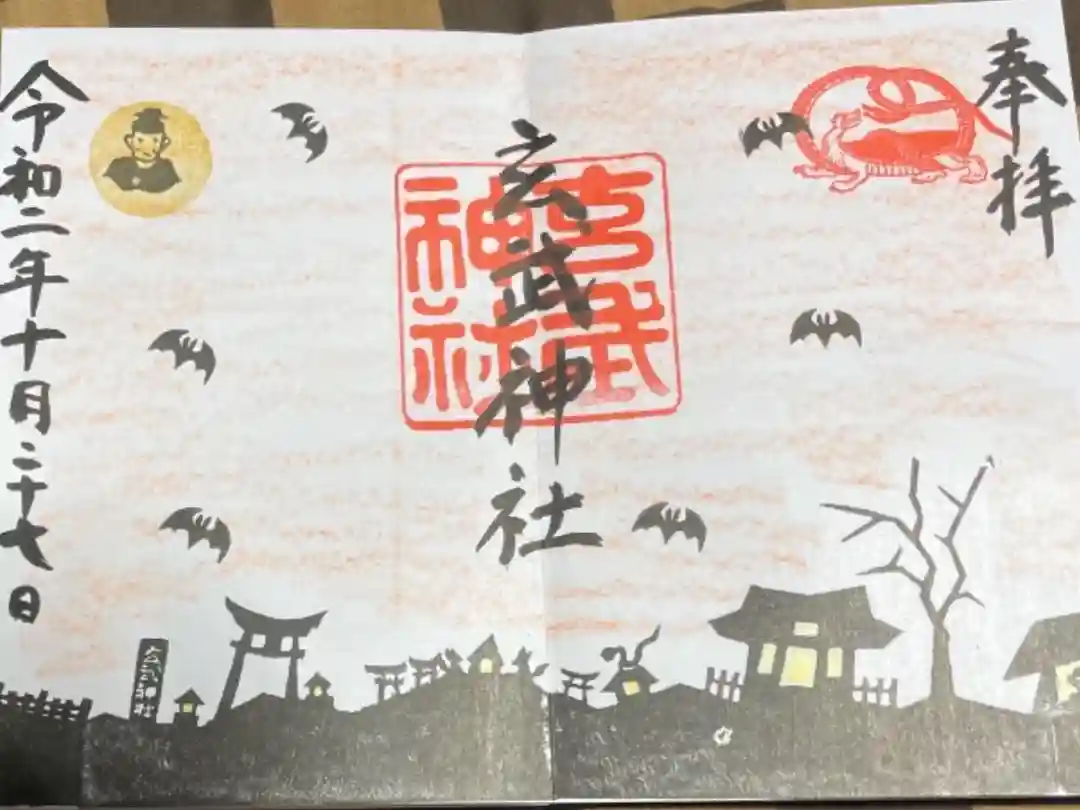 奉拝
玄武神社
玄武神社
令和二年十月二十七日
玄武神社